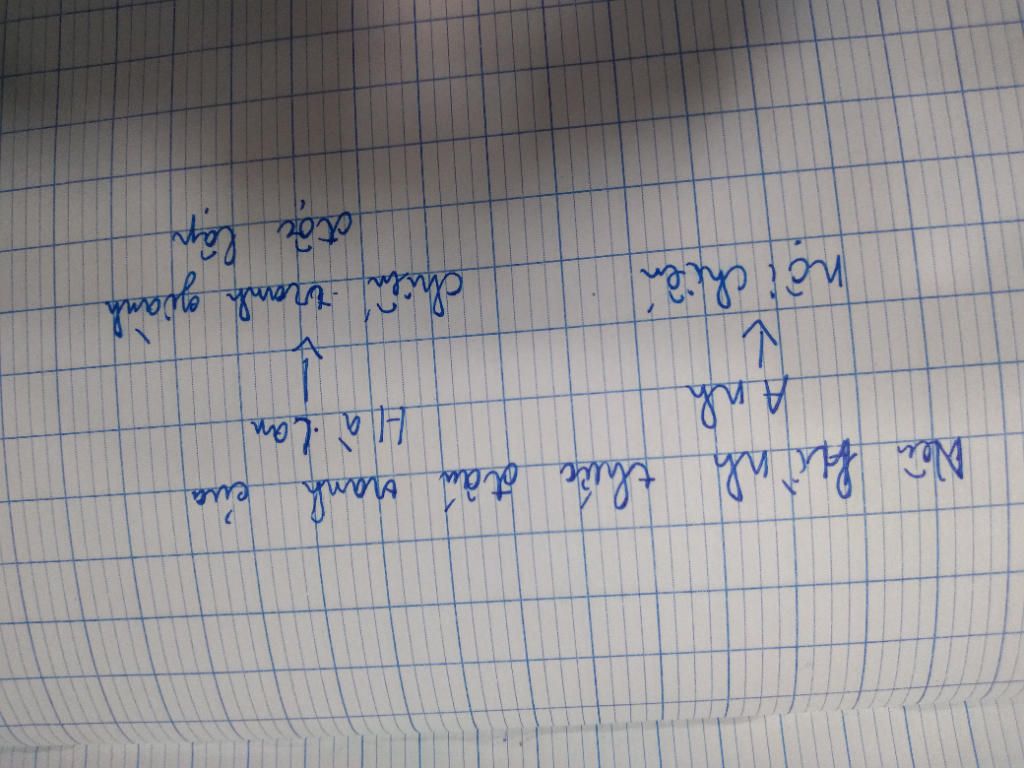 Nêu hình thức đấu tranh của
Anh Hà Lan
nội chiến chiến tranh giành
độc lập